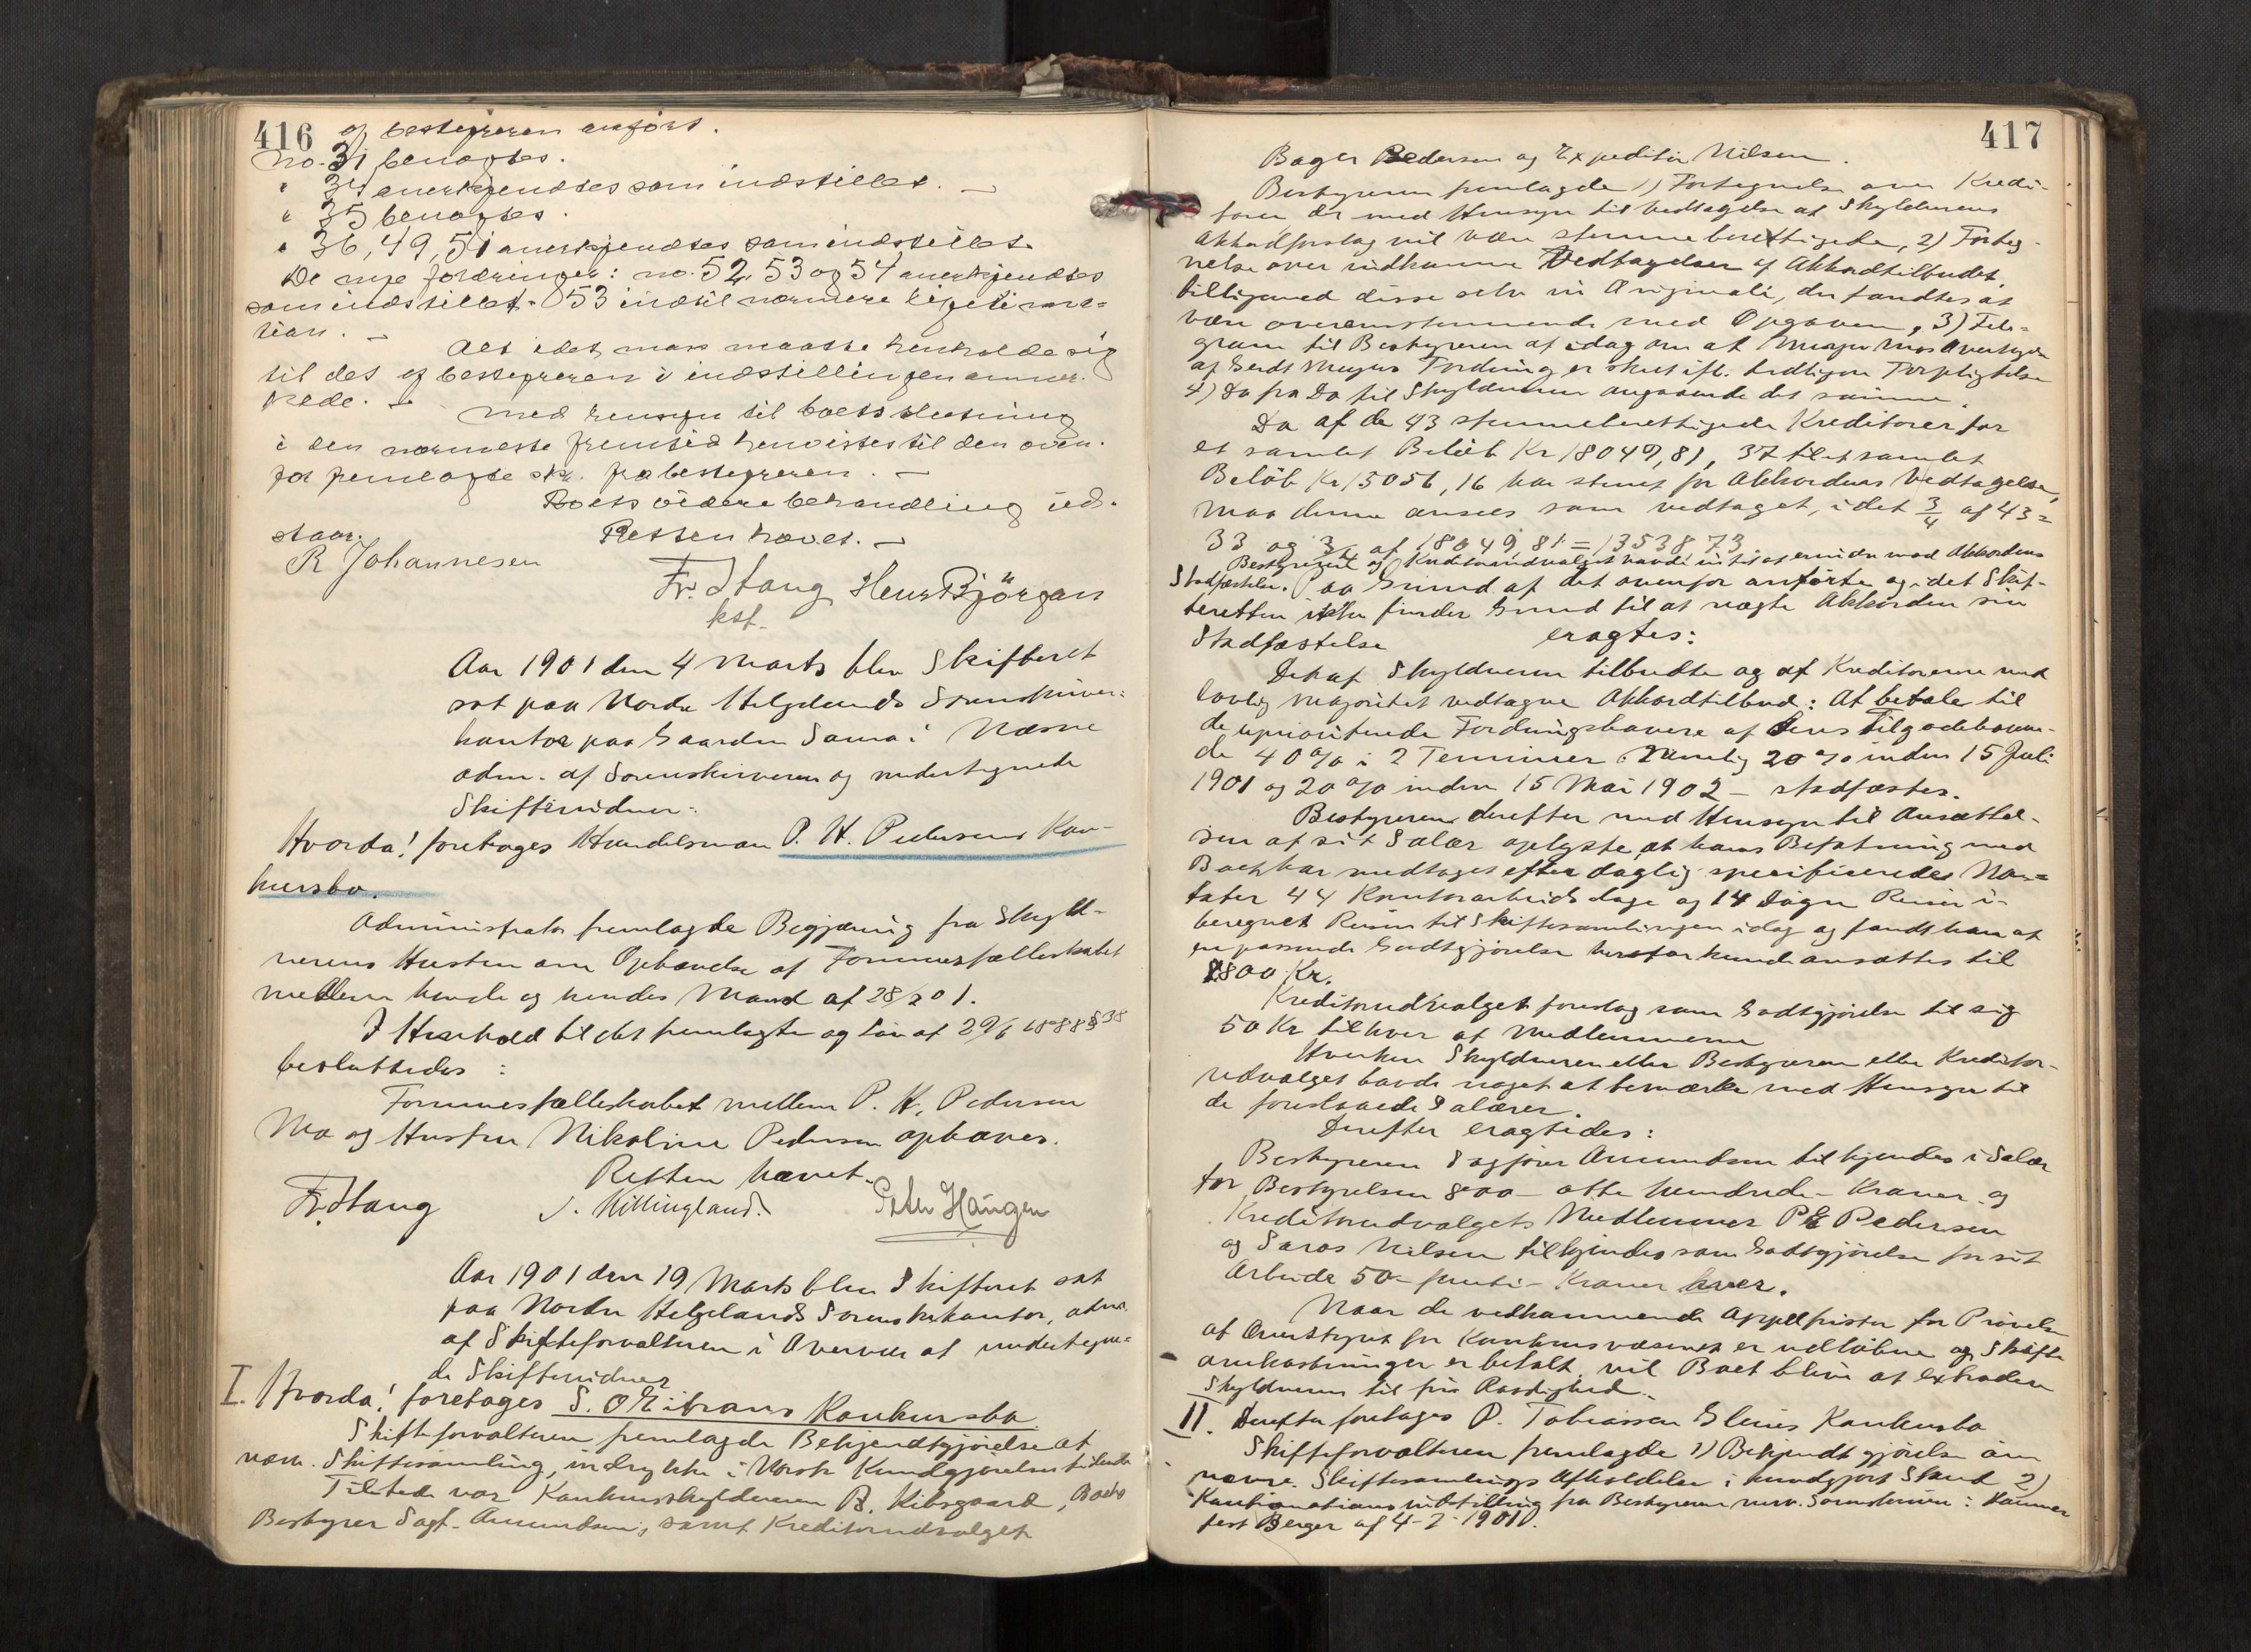 416
af bestyreren anført.
No. 31 benægtes.
" 34 anerkjendtes som indstillet. —
" 35 benægtes.
" 36, 49, 51 anerkjendtes som indstillet.
De nye fordringer: no. 52, 53 og 54 anerkjendtes
som indstillet. 53 indtil nærmere legitima=
tion. —
Alt idet man maatte henholde sig
til det af bestyreren i indstillingen anmær-
kede. —
Med hensyn til boets slutning
i den nærmeste fremtid henvistes til den oven-
for fremlagte skr. fra bestyreren. —
Boets videre behandling ud-
staar.
Retten hævet. —
R Johannesen
Fr. Stang Henr Björgan
kst.
Aar 1901 den 4 Marts blev Skifteret
sat paa Nordre Helgelands Sorenskriver=
kontor paa Gaarden Sama i Næsne
adm. af Sorenskriveren og undertegnede
Skiftevidner:
Hvorda! foretages Handelsman P. H. Pedersens Kon-
kursbo.
Administrator fremlagde Begjæring fra Skyld-
nerens Hustru om Ophævelse af Formuesfællesskabet
mellem hende og hendes Mand af 28/2 01.
I Henhold til det fremlagte og Lov af 29/6 1888 § 38
besluttedes:
Formuesfællesskabet mellem P. H. Pedersen
Mo og Hustru Nikoline Pedersen ophæves.
Retten hævet.
Fr. Stang
J. Killingland.
Peter Haugen
Aar 1901 den 19 Marts blev Skifteret sat
paa Nordre Helgelands Sorenskr.kontor, adm.
af Skifteforvalteren i Overvær af undertegne=
de Skiftevidner
I. Hvorda! foretages S. O Eitrans Konkursbo.
Skifteforvalteren fremlagde Bekjendtgjørelse at
nærv. Skiftesamling, indrykke i Norsk Kundgjørelsestidende
Tilstede var Konkursskyldneren B. Kibsgaard, Boets
Bestyrer Sagf. Amundsen, samt Kreditorudvalget
417
Bager Pedersen og Expeditør Nilsen.
Bestyreren fremlagde 1) Fortegnelse over Kredi-
torer der med Hensyn til Vedtagelse af Skyldnerens
Akkordforslag vil være stemmeberettigede, 2) Forteg-
nelse over indkomne Vedtagelser af Akkordtilbudet,
tilligemed disse selv in Originali, der fandtes at
være overensstemmende med Opgaven, 3) Tele-
gram til Bestyreren af idag om at
af Gerdt Meyers Fordring er
4) Do fra Do til Skyldneren angaaende det samme.
Da af de 43 stemmeberettigede Kreditorer for
et samlet Beløb Kr 18049,81, 37 til et samlet
Beløb Kr 15056,16 har stemt for Akkordens Vedtagelse,
maa denne ansees som vedtaget, idet 3/4 af 43 =
33 og 3/4 af 18049 81 = 13538 73
Bestyreren og Kreditorudvalget havde intet at erindre mod Akkordens
Stadfæstelse. Paa Grund af det ovenfor anførte og idet Skif-
teretten ikke finder Grund til at nægte Akkorden sin
Stadfæstelse eragtes:
Det af Skyldneren tilbudte og af Kreditorerne med
lovlig Majoritet vedtagne Akkordtilbud: At betale til
de uprioriterede Fordringshavere af deres Tilgodehaven-
de 40 % i 2 Terminer: Nemlig 20 % inden 15 Juli
1901 og 20 % inden 15 Mai 1902 — stadfæstes.
Bestyreren derefter med Hensyn til Ansættel-
sen af sit Salær oplyste, at hans Befatning med
Boet har medtaget efter daglig specificerede No=
tater 44 Kontorarbeidsdage og 14 Døgn Reiser i-
beregnet Reisen til Skiftesamlingen idag og fandt han at
en passende Godtgjørelse herfor kunde ansættes til
800 Kr.
Kreditorudvalget foreslog som Godtgjørelse til sig
50 Kr til hver af Medlemmerne
Hverken Skyldneren eller Bestyreren eller Kreditor-
udvalget havde noget at bemærke med Hensyn til
de foreslaaede Salærer.
Derefter eragtedes:
Bestyreren Sagfører Amundsen tilkjendes i Salær
for Bestyrelsen 800 — otte hundrede — Kroner og
Kreditorudvalgets Medlemmer P E Pedersen
og Saros Nilsen tilkjendes som Godtgjørelse for sit
Arbeide 50 — femti — Kroner hver.
Naar de vedkommende Appelfrister for Prøvelse
af Overstyret for Konkursvæsenet er udløbne og Skifte
omkostninger er betalt, vil Boet blive at extradere
Skyldneren til fri Raadighed.
II. Derefter foretages P. Tobiassen Glenes Konkursbo
Skifteforvalteren fremlagde 1) Bekjendtgjørelse om
nærv. Skiftesamlings Afholdelse i kundgjort Stand 2)
indstilling fra Bestyreren
Berger af 4-2-1901.